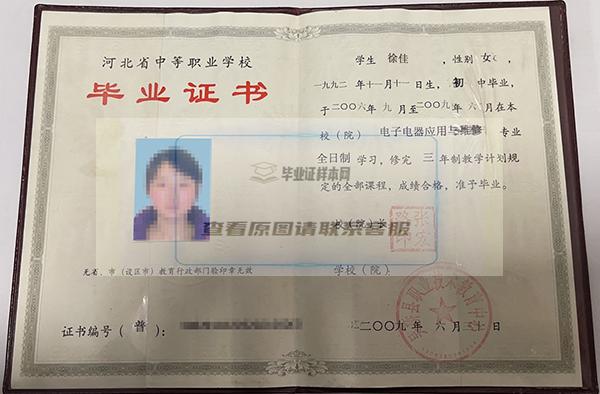 河北省中等职业学校
毕业证书
毕业证样本网
查看原图请联系客服
无省、市（设区市）教育行政部门验印章无效
证书编号（普）
学生 徐佳 ，性别 女 ，
一九九二 年十一月十一日生，初 中毕业，
于二〇〇六年 九 月至二〇〇九年 六 月在本
校（院） 电子电器应用与维修 专业
全日制 学习，修完 三 年制教学计划规
定的全部课程，成绩合格，准予毕业。
校（院）长
学校（院）
二〇〇九 年 六 月三十日